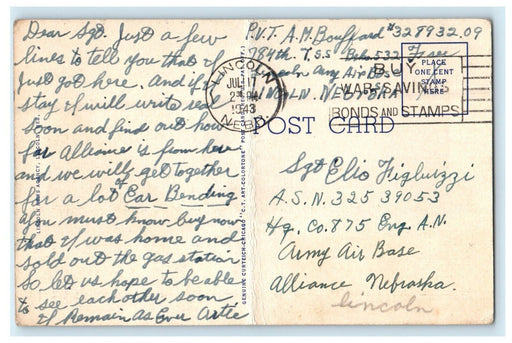 Dear Sgt. Just a few
lines to tell you that I
Just got here. And if I
stay I will write real
soon and find out how
far Alliance is from here
and we will get together
for a lot of Ear Bending
you must know buy now
that I was home and
sold out the gas station
So let us hope to be able
to see each other soon
I Remain As Ever Artie
GENUINE CURTEICH-CHICAGO "C.T. ART-COLORTONE" POST CARD
P.V.T. A.M. Bouffard #32893209
784th. T.S.S. Bks. 532
Lincoln Army Air Base
LINCOLN, NEBR
LINCOLN
JUL 11
1943
NEBR.
BUY
WAR SAVINGS
BONDS AND STAMPS
PLACE
ONE CENT
STAMP
HERE
POST CARD
Sgt Elio Figliuzzi
A.S.N. 32539053
Hq. Co. 875 Eng. A.N.
Army Air Base
Alliance Nebraska.
lincoln